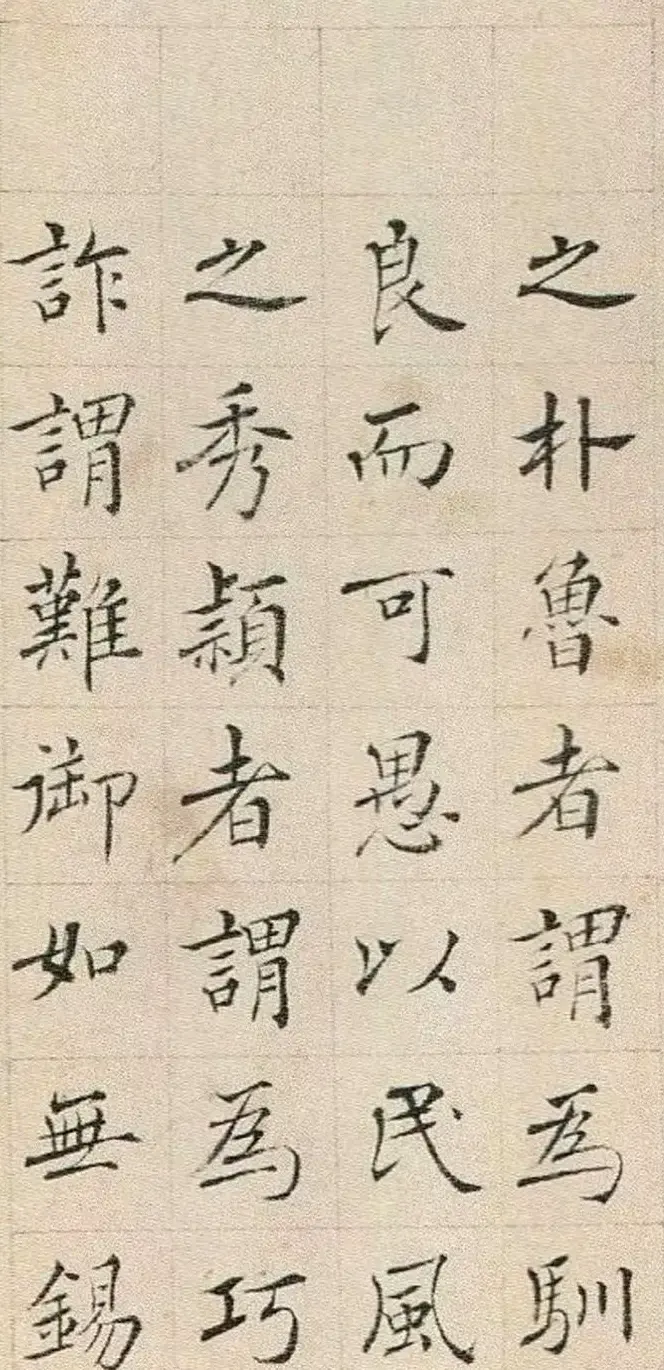 之朴魯者謂為馴
良而可愚以民風
之秀穎者謂為巧
詐謂難御如無錫